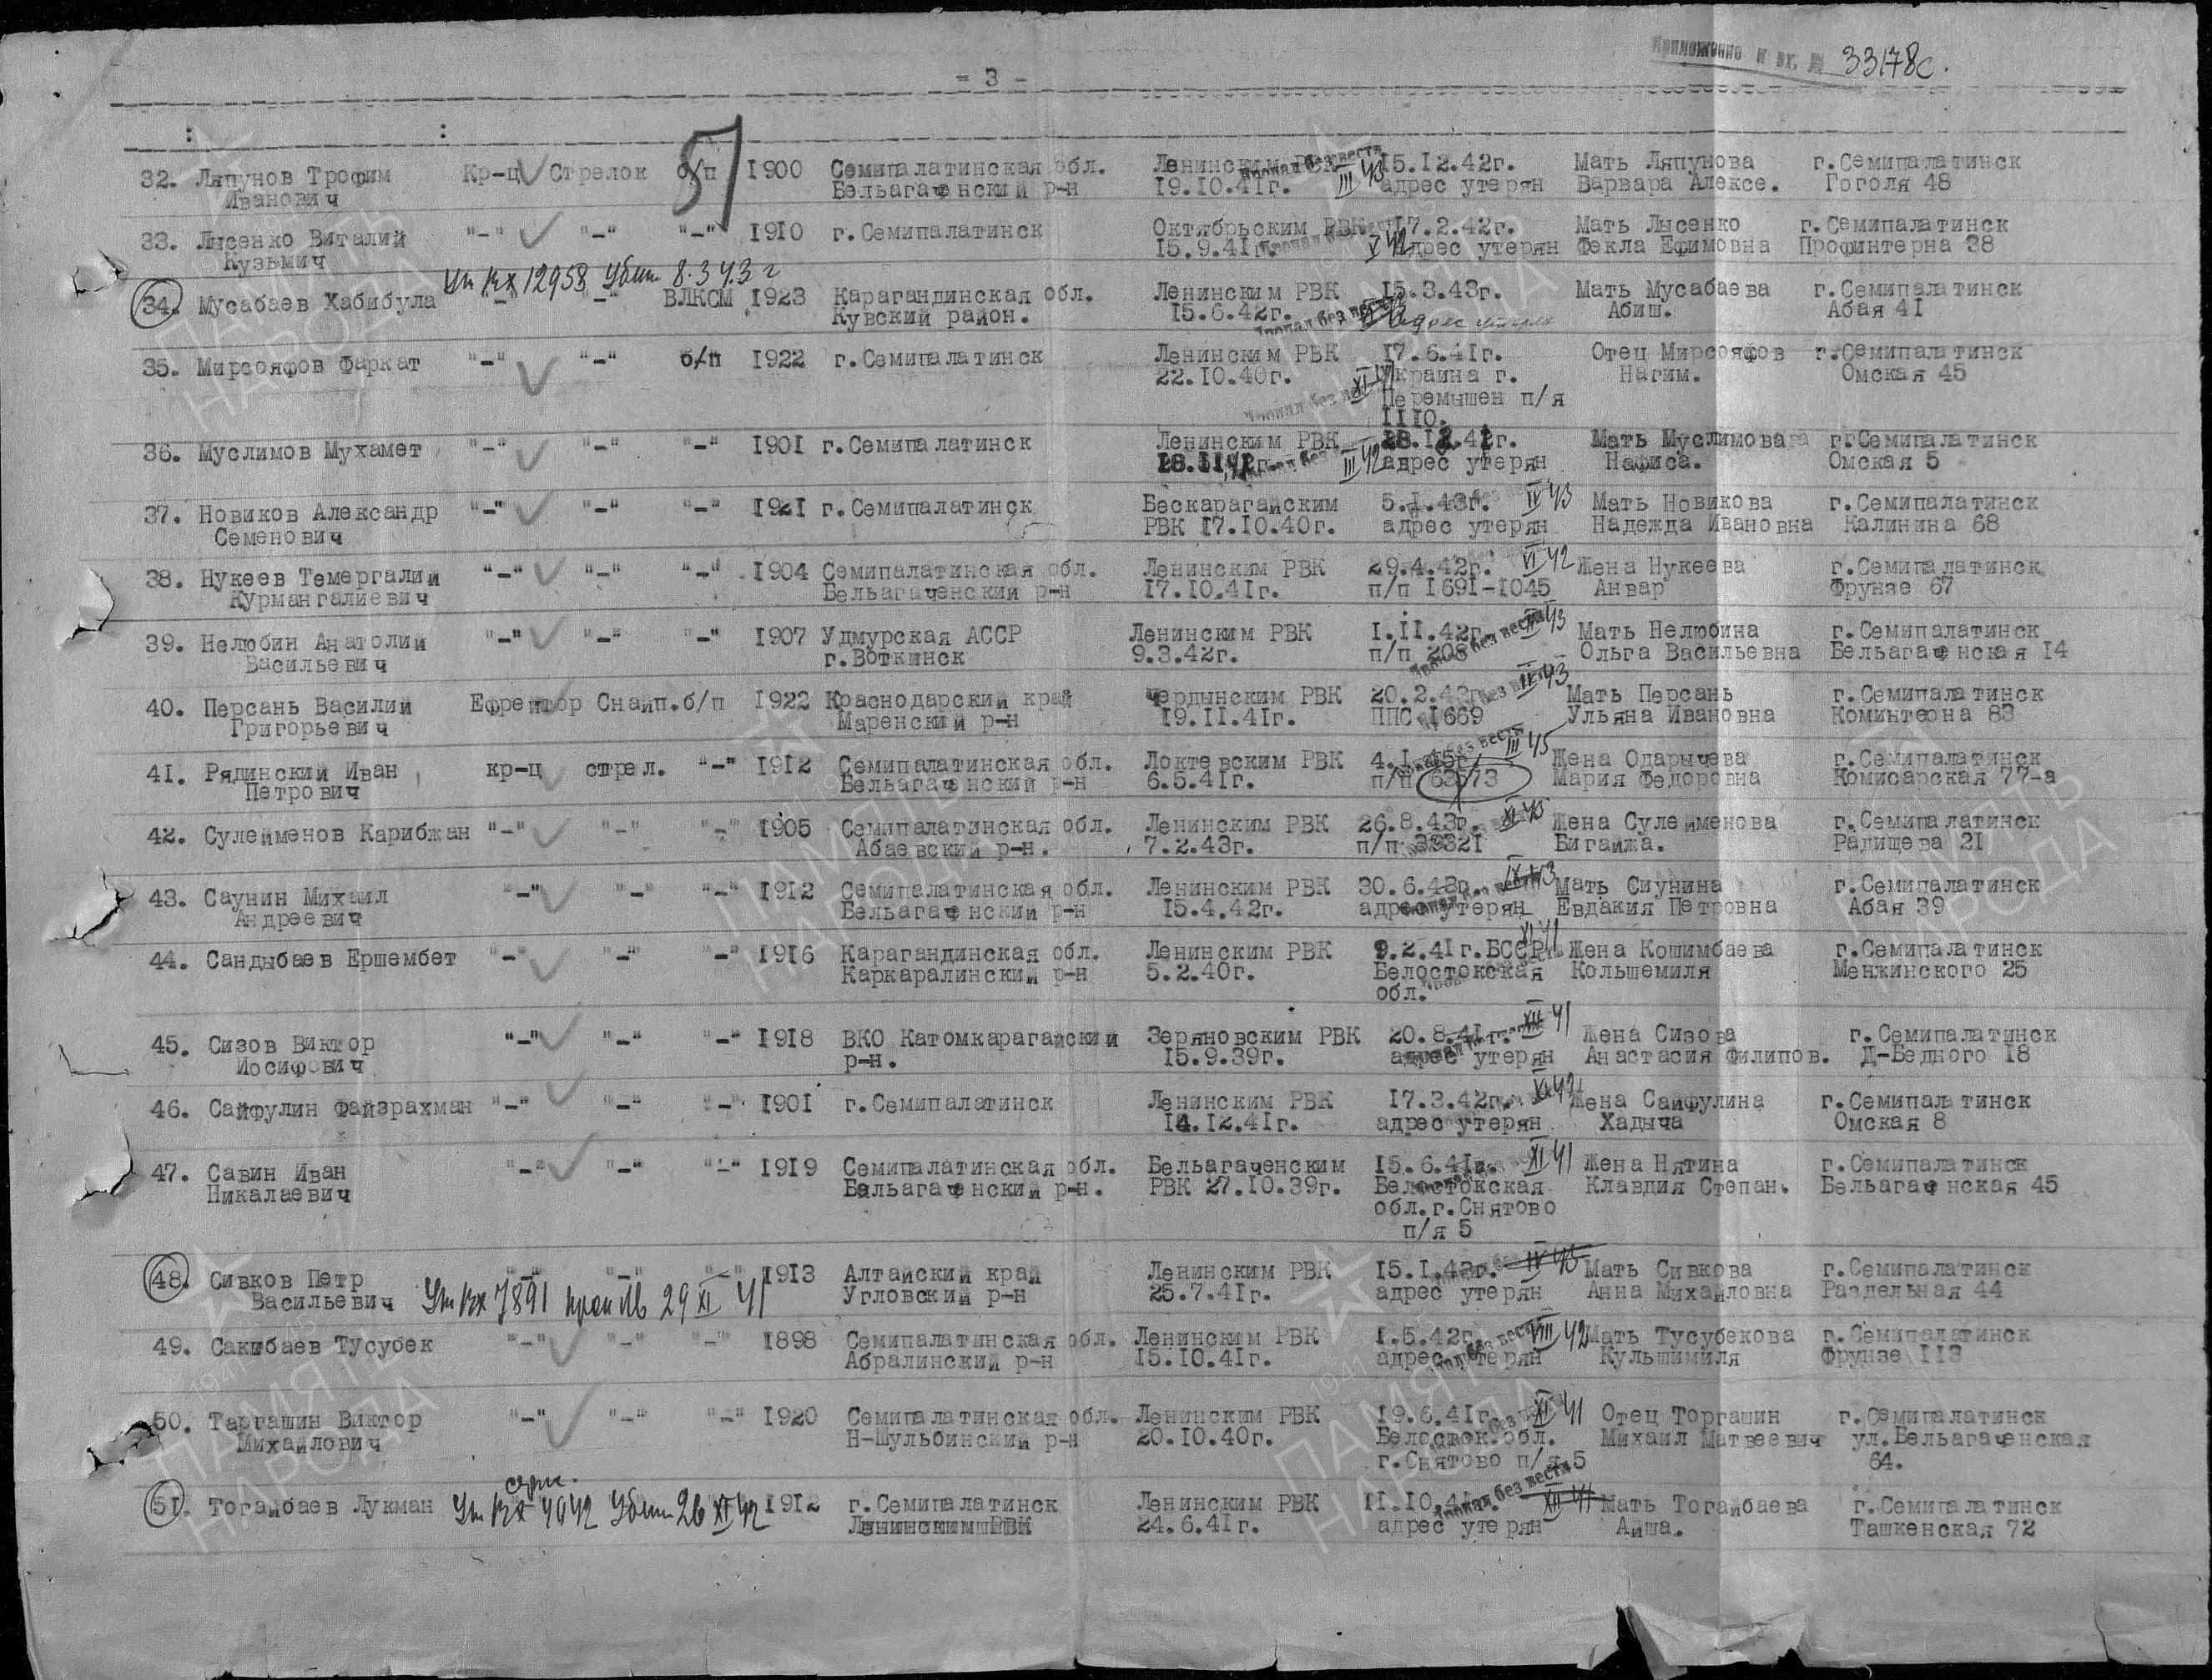 Приложение к вх. № 33178с.
- 3 -
51
32. Ляпунов Трофим Кр-ц Стрелок б/п 1900 Семипалатинская обл. Ленинским РВК 15.12.42г. Мать Ляпунова г.Семипалатинск
Иванович Бельагаченский р-н 19.10.41г. III 43 адрес утерян Варвара Алексе. Гоголя 48
33. Лысенко Виталий "-" "-" "-" 1910 г.Семипалатинск Октябрьским РВК 17.2.42г. Мать Лысенко г.Семипалатинск
Кузьмич 15.9.41г. V 42 адрес утерян Фекла Ефимовна Профинтерна 38
Уч Вх 12958 Убит 8.3 43 г
34. Мусабаев Хабибула "-" "-" ВЛКСМ 1923 Карагандинская обл. Ленинским РВК 15.3.43г. Мать Мусабаева г.Семипалатинск
Кувский район. 15.6.42г. Пропал без вести адрес утерян Абиш. Абая 41
35. Мирсояфов Фаркат "-" "-" б/п 1922 г.Семипалатинск Ленинским РВК 17.6.41г. Отец Мирсояфов г.Семипалатинск
22.10.40г. XI 41 Украина г. Нагим. Омская 45
Перемышен п/я
1110.
36. Муслимов Мухамет "-" "-" "-" 1901 г.Семипалатинск Ленинским РВК 28.12.41г. Мать Муслимова г.Семипалатинск
III 42 адрес утерян Нафиса. Омская 5
37. Новиков Александр "-" "-" "-" 1921 г.Семипалатинск Бескарагайским 5.1.43г. IV 43 Мать Новикова г.Семипалатинск
Семенович РВК 17.10.40г. адрес утерян Надежда Ивановна Калинина 68
38. Нукеев Темергалий "-" "-" "-" 1904 Семипалатинская обл. Ленинским РВК 29.4.42г. VI 42 Жена Нукеева г.Семипалатинск
Курмангалиевич Бельагаченский р-н 17.10.41г. п/п 1691-1045 Анвар Фрунзе 67
39. Нелюбин Анатолий "-" "-" "-" 1907 Удмурская АССР Ленинским РВК 1.11.42г. 43 Мать Нелюбина г.Семипалатинск
Васильевич г.Воткинск 9.3.42г. п/п 208 Пропал без вести Ольга Васильевна Бельагаченская 14
40. Персань Василий Ефрейтор Снайп. б/п 1922 Краснодарский край Чердынским РВК 20.2.43г. 43 Мать Персань г.Семипалатинск
Григорьевич Маренский р-н 19.11.41г. ППС 1669 Ульяна Ивановна Коминтерна 83
41. Рядинский Иван кр-ц стрел. "-" 1912 Семипалатинская обл. Локтевским РВК 4.1.45г. III 45 Жена Одарычева г.Семипалатинск
Петрович Бельагаченский р-н 6.5.41г. п/п Мария Федоровна Комисарская 77-а
42. Сулейменов Карибжан "-" "-" "-" 1905 Семипалатинская обл. Ленинским РВК 26.8.43г. XI 43 Жена Сулейменова г.Семипалатинск
Абаевский р-н. 7.2.43г. п/п 39321 Бигайжа. Радищева 21
43. Саунин Михаил "-" "-" "-" 1912 Семипалатинская обл. Ленинским РВК 30.6.43г. IX 43 Мать Сиунина г.Семипалатинск
Андреевич Бельагаченский р-н 15.4.42г. адрес утерян Евдакия Петровна Абая 39
44. Сандыбаев Ершембет "-" "-" "-" 1916 Карагандинская обл. Ленинским РВК 9.2.41г.БССР XI 41 Жена Кошимбаева г.Семипалатинск
Каркаралинский р-н 5.2.40г. Белостокская Кольшемиля Менжинского 25
обл.
45. Сизов Виктор "-" "-" "-" 1918 ВКО Катомкарагайский Зеряновским РВК 20.8.41г. XII 41 Жена Сизова г.Семипалатинск
Иосифович р-н. 15.9.39г. адрес утерян Анастасия Филипов. Д-Бедного 18
46. Сайфулин Файзрахман "-" "-" "-" 1901 г.Семипалатинск Ленинским РВК 17.3.42г. XI 42 Жена Сайфулина г.Семипалатинск
14.12.41г. адрес утерян Хадыча Омская 8
47. Савин Иван "-" "-" "-" 1919 Семипалатинская обл. Бельагаченским 15.6.41г. XI 41 Жена Нятина г.Семипалатинск
Никалаевич Бельагаченский р-н. РВК 27.10.39г. Белостокская Клавдия Степан. Бельагаченская 45
обл.г.Снятово
п/я 5
48. Сивков Петр "-" "-" "-" 1913 Алтайский край Ленинским РВК 15.1.43г. IV 43 Мать Сивкова г.Семипалатинск
Васильевич Уч Вх 7891 29 XI 41 Угловский р-н 25.7.41г. адрес утерян Анна Михайловна Раздельная 44
49. Сакибаев Тусубек "-" "-" "-" 1898 Семипалатинская обл. Ленинским РВК 1.5.42г. VIII 42 Мать Тусубекова г.Семипалатинск
Абралинский р-н 15.10.41г. адрес утерян Кульшимиля Фрунзе 113
50. Таргашин Виктор "-" "-" "-" 1920 Семипалатинская обл. Ленинским РВК 19.6.41г. XI 41 Отец Торгашин г.Семипалатинск
Михайлович Н-Шульбинский р-н 20.10.40г. Белосток.обл. Михаил Матвеевич ул.Бельагаченская
г.Снятово п/я 5 64.
серж.
51. Тогайбаев Лукман Уч Вх 4042 Убит 26 XI 42 1912 г.Семипалатинск Ленинским РВК 11.10.41г. XII 41 Мать Тогайбаева г.Семипалатинск
Ленинским РВК 24.6.41г. Пропал без вести адрес утерян Айша. Ташкенская 72
ПАМЯТЬ НАРОДА